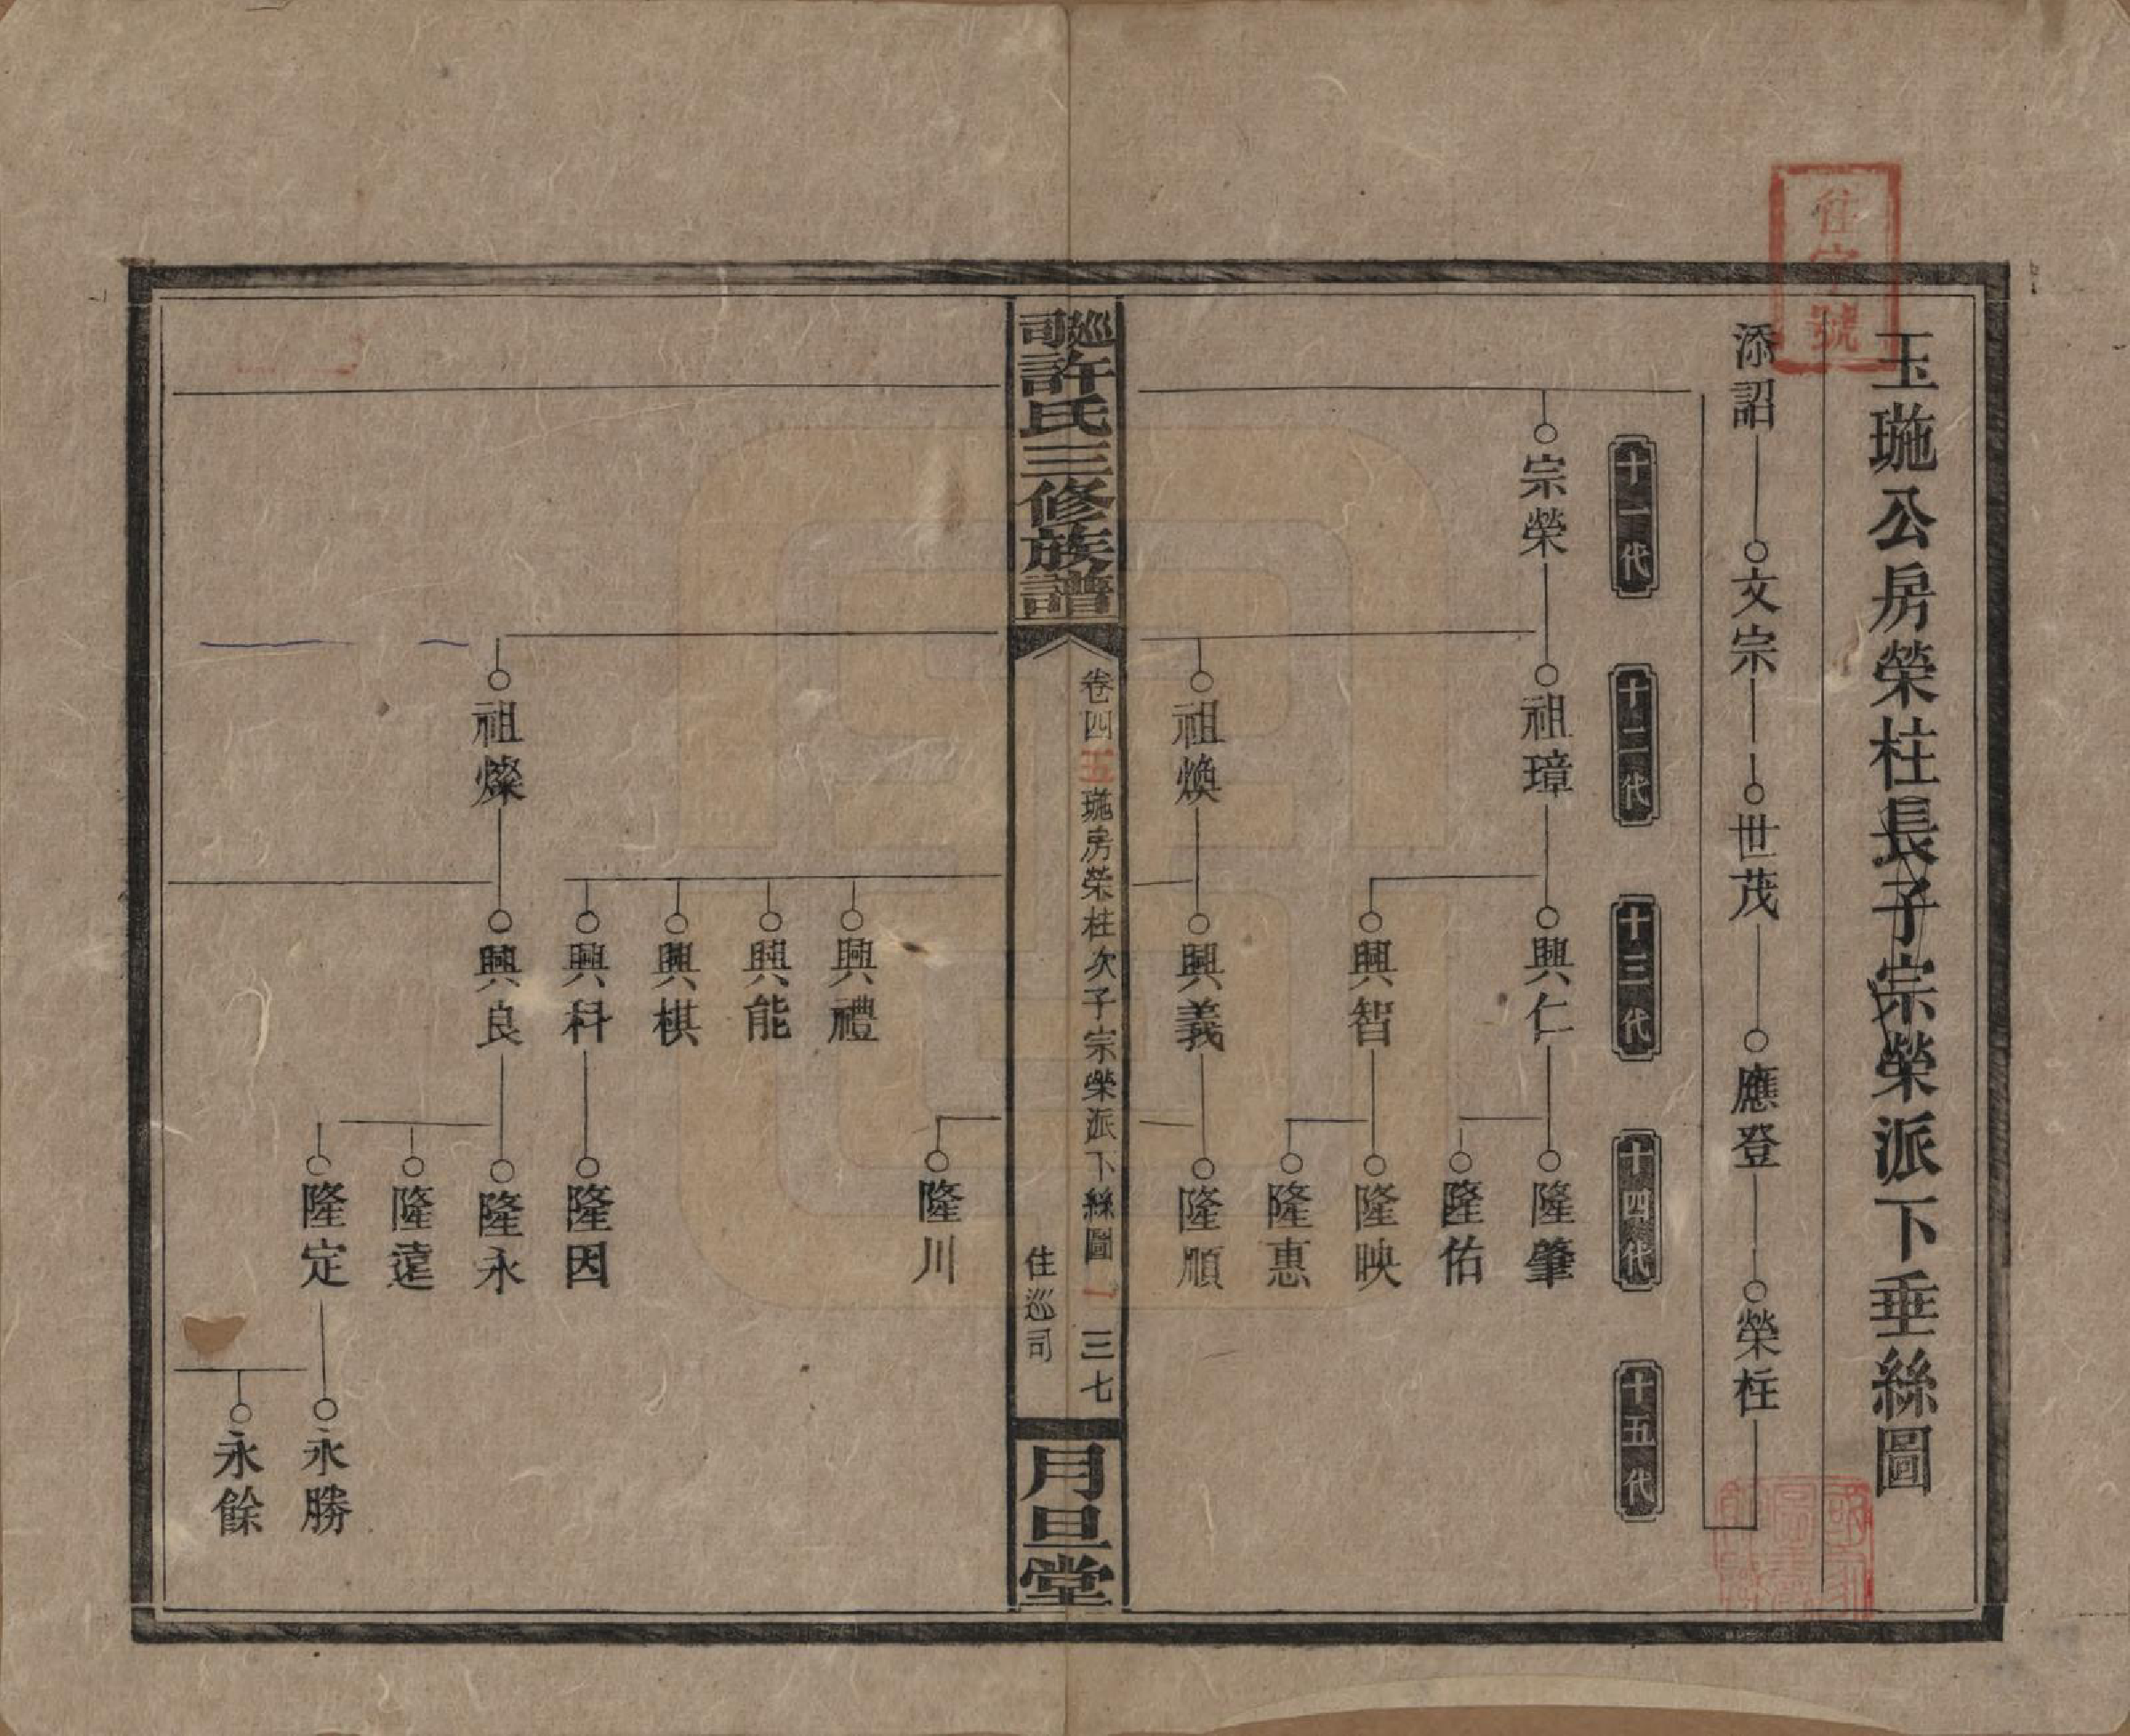 玉㻫公房榮柱長子宗榮派下垂絲圖
住字號
添詔
文宗
世茂
應登
榮柱
十一代
十二代
十三代
十四代
十五代
宗榮
祖璋
興仁
隆肇
隆佑
興智
隆映
隆惠
祖煥
興義
隆順
巡司許氏三修族譜
卷四 五㻫房荣柱次子宗榮派下絲圖 一 三七
住巡司
月旦堂
隆川
興禮
興能
興棋
興科
隆因
祖燦
興良
隆永
隆遠
隆定
永勝
永餘